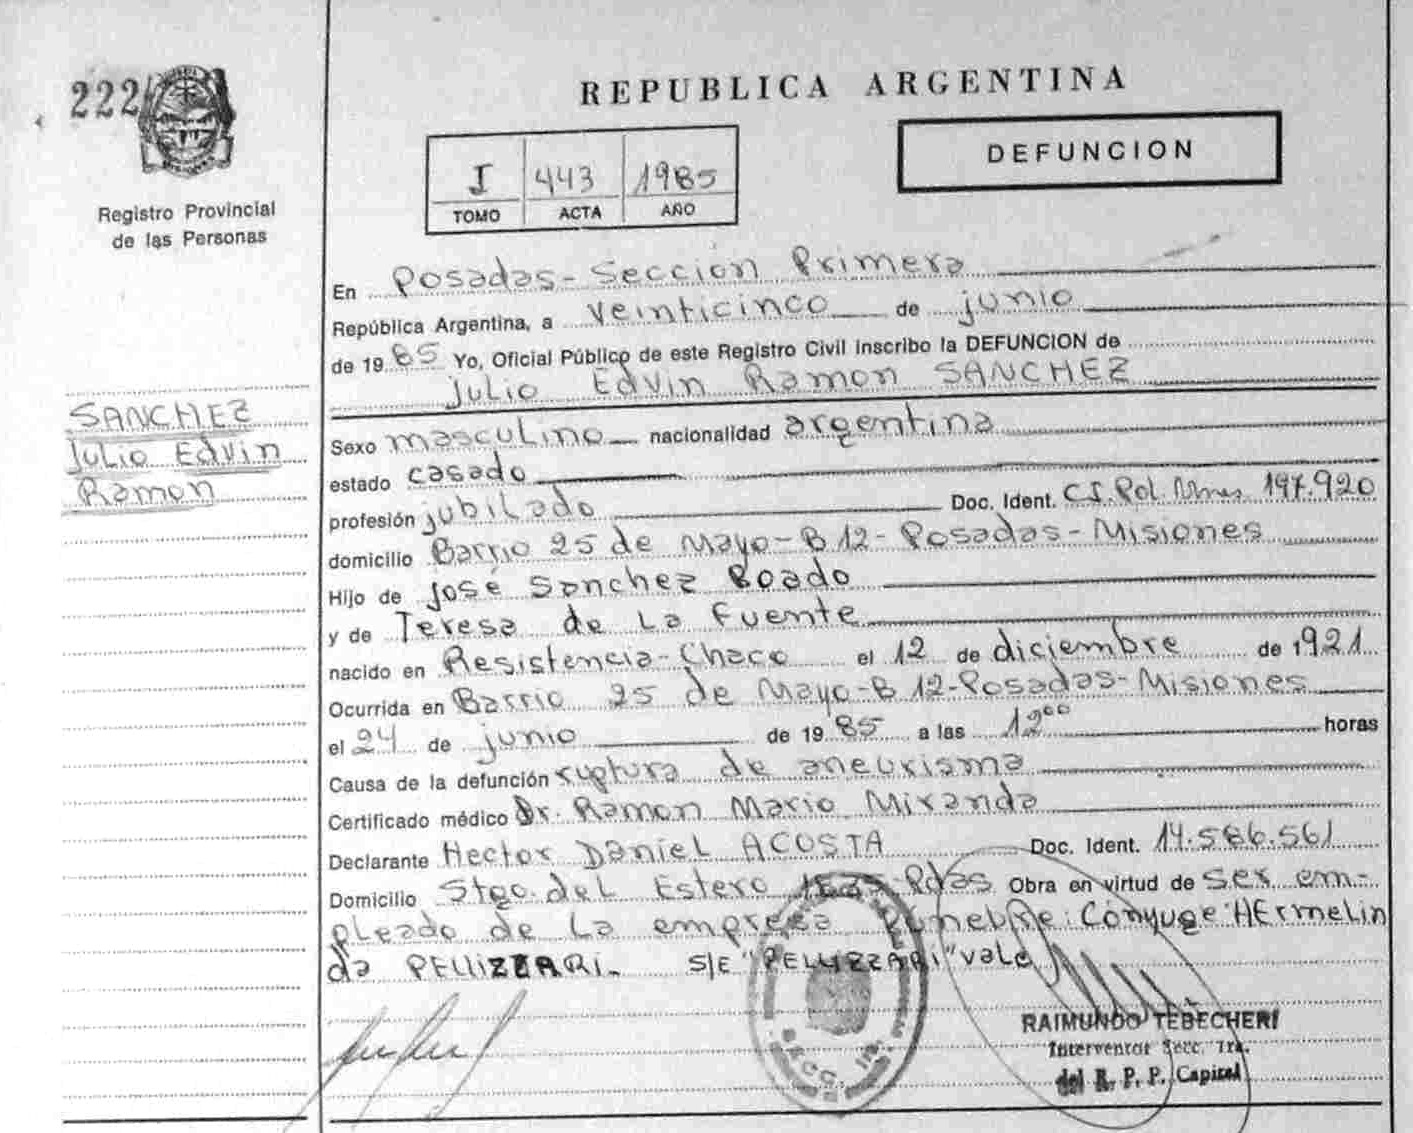 222
REPUBLICA ARGENTINA
DEFUNCION
I 443 1985
TOMO ACTA AÑO
Registro Provincial
de las Personas
En Posadas-Sección Primera
República Argentina, a veinticinco de junio
de 1985 Yo, Oficial Público de este Registro Civil inscribo la DEFUNCION de
Julio Edvin Ramon SANCHEZ
SANCHEZ
Julio Edvin
Ramon
Sexo masculino nacionalidad argentina
estado casado
profesión jubilado Doc. Ident. C.I. Pol. Mnes 197.920
domicilio Barrio 25 de Mayo-B 12-Posadas-Misiones
Hijo de José Sanchez Boado
y de Teresa de La Fuente
nacido en Resistencia-Chaco el 12 de diciembre de 1921
Ocurrida en Barrio 25 de Mayo-B 12-Posadas-Misiones
el 24 de junio de 1985 a las 12⁰⁰ horas
Causa de la defunción ruptura de aneurisma
Certificado médico Dr. Ramon Mario Miranda
Declarante Hector Daniel ACOSTA Doc. Ident. 14.586.561
Domicilio Stgo. del Estero Pdas Obra en virtud de ser em-
pleado de la empresa fúnebre. Cónyuge: HErmelin
da PELLIZZARI. S/E "PELLIZZARI" vale
RAIMUNDO TEBECHERI
Interventor Secc. 1ra.
del R. P. P. Capital
SECC. 1ra.